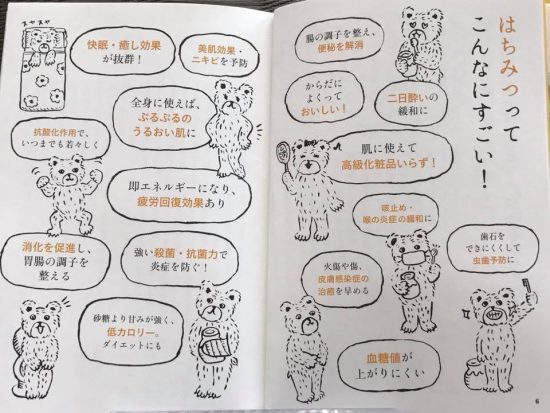 はちみつって
こんなにすごい！
腸の調子を整え、
便秘を解消
からだに
よくって
おいしい！
二日酔いの
緩和に
肌に使えて
高級化粧品いらず！
咳止め・
喉の炎症の緩和に
歯石を
できにくくして
虫歯予防に
火傷や傷、
皮膚感染症の
治癒を早める
血糖値が
上がりにくい
6
スヤスヤ
快眠・癒し効果
が抜群！
美肌効果・
ニキビを予防
全身に使えば、
ぷるぷるの
うるおい肌に
抗酸化作用で、
いつまでも若々しく
即エネルギーになり、
疲労回復効果あり
消化を促進し、
胃腸の調子を
整える
強い殺菌・抗菌力で
炎症を防ぐ！
砂糖より甘みが強く、
低カロリー。
ダイエットにも